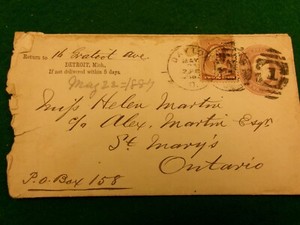 Return to 16 Gratiot Ave
DETROIT, Mich.
If not delivered within 5 days.
May 22=1887
Miss Helen Martin
c/o Alex. Martin Esq.
St Mary's
Ontario
P.O. Box 158